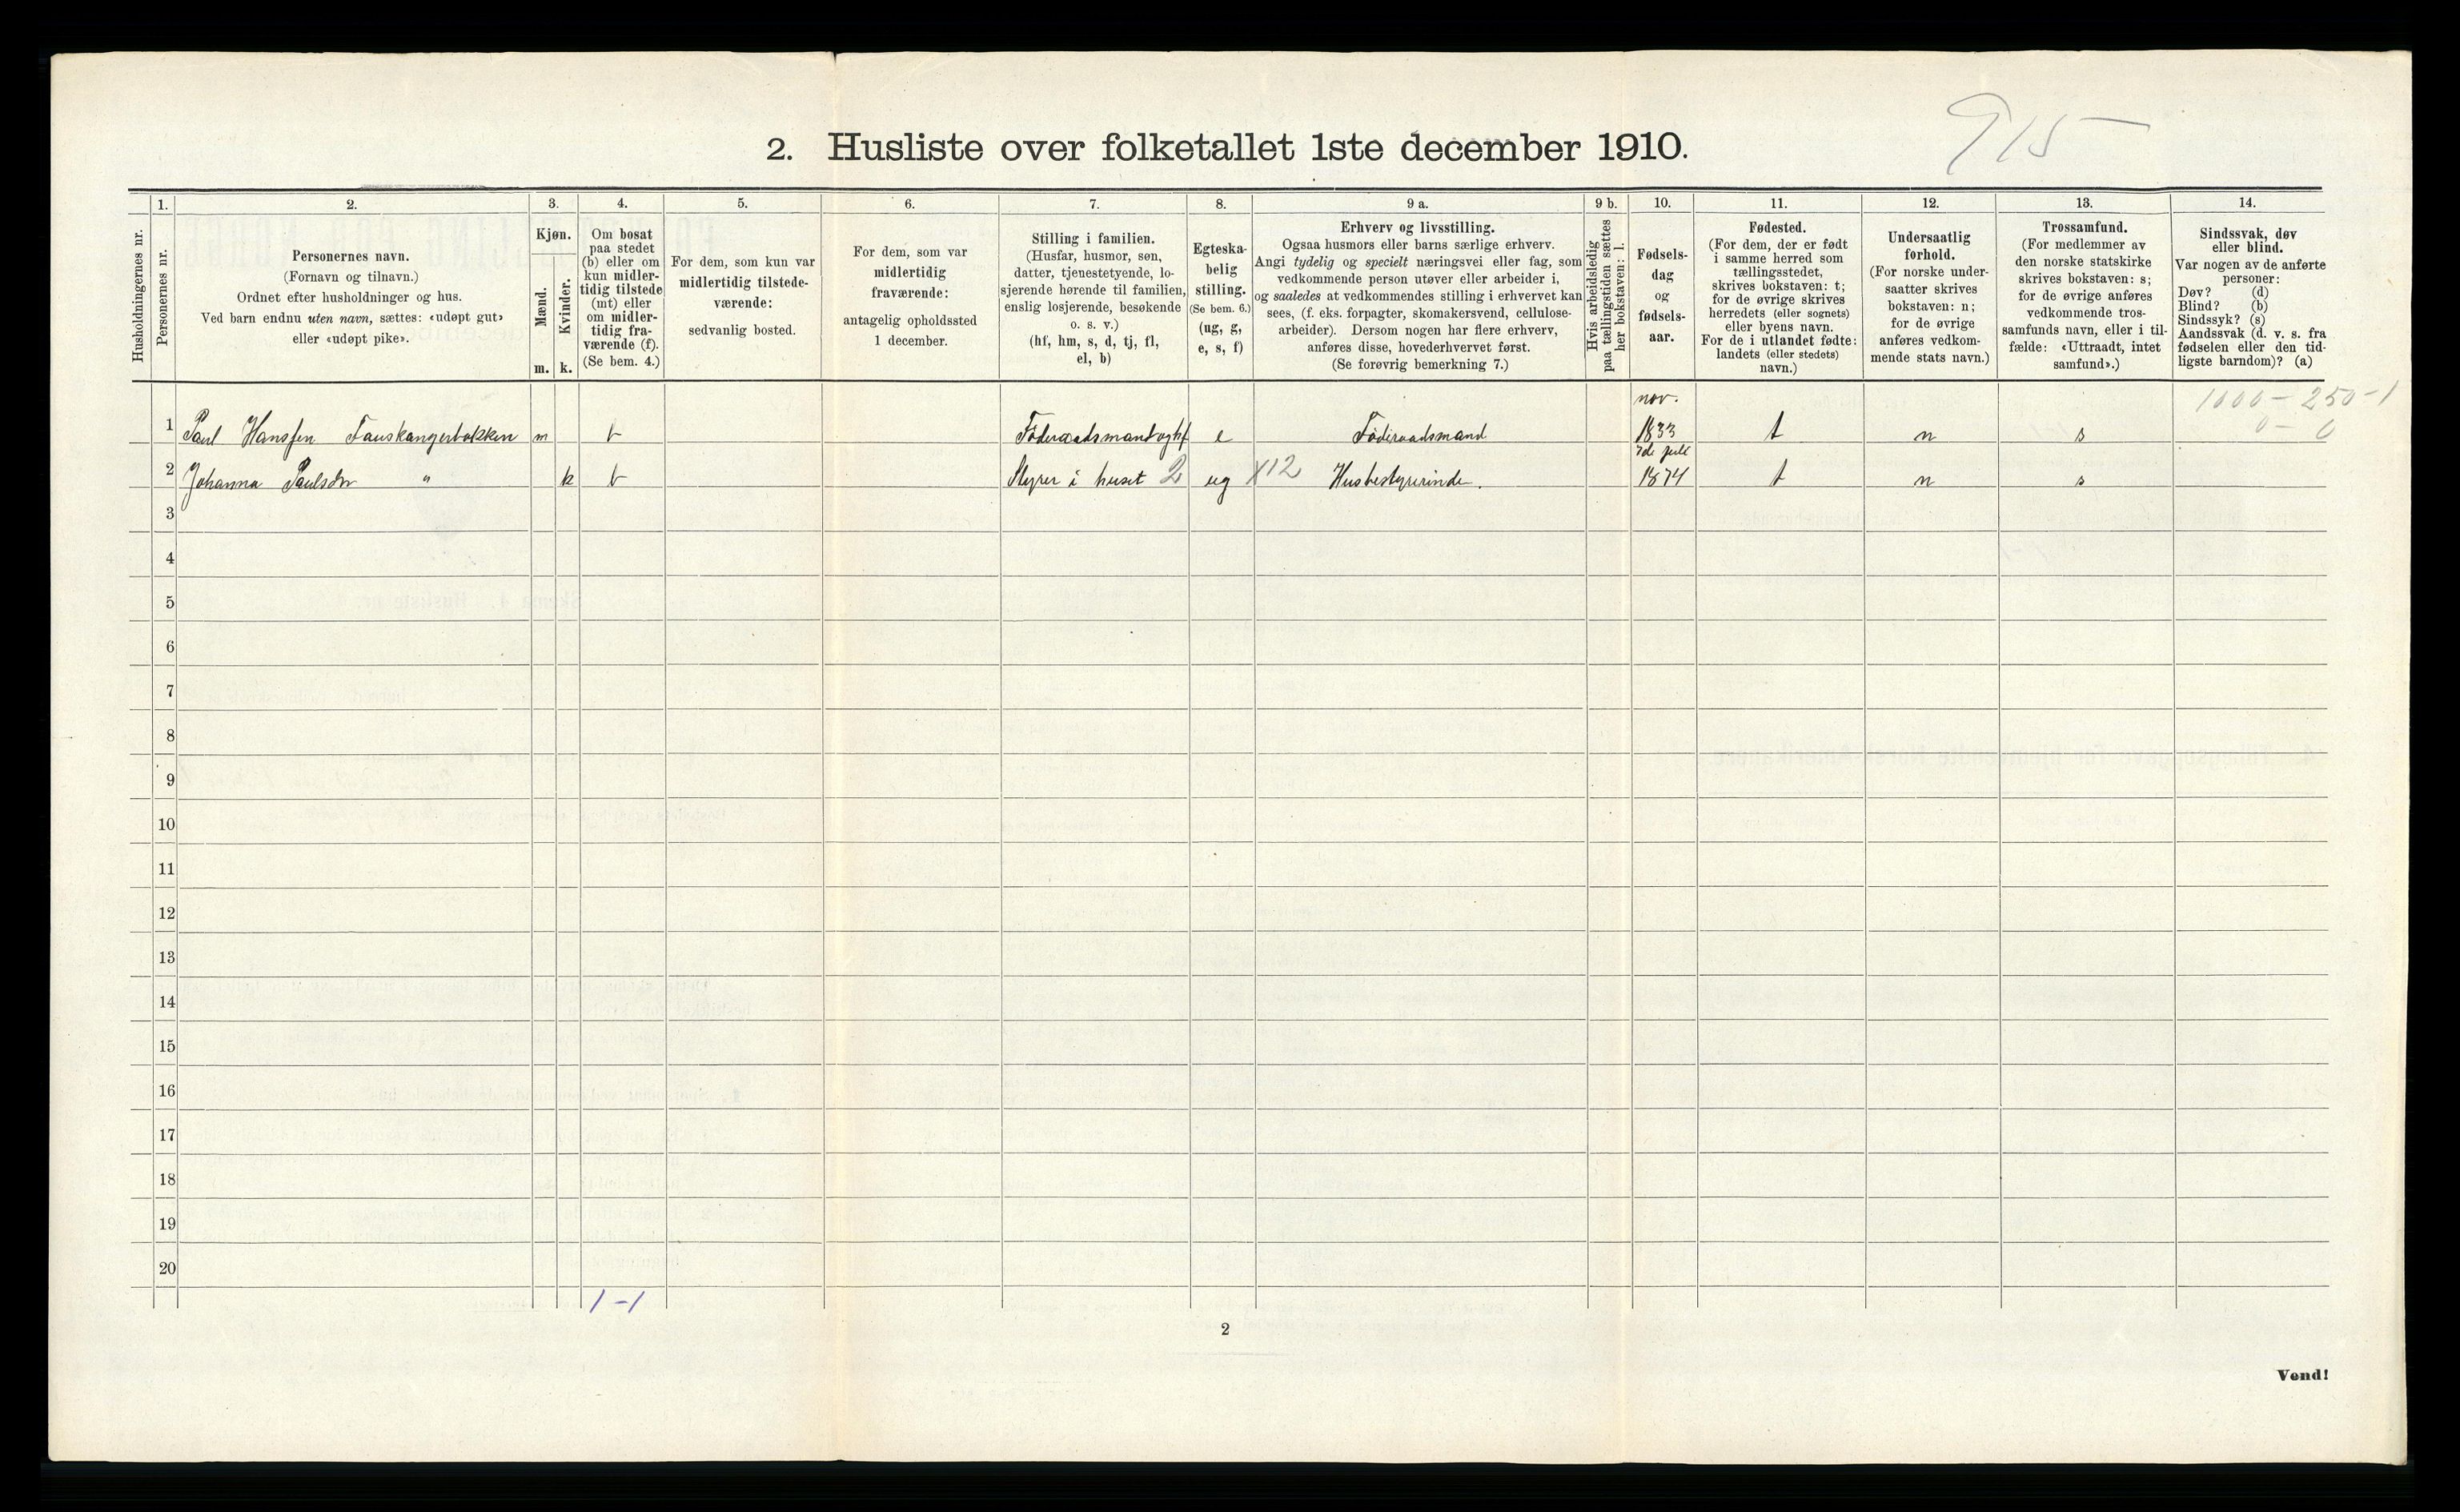 915
2. Husliste over folketallet 1ste december 1910.
Husholdningernes nr.
1.
Personernes nr.
2.
Personernes navn.
(Fornavn og tilnavn.)
Ordnet efter husholdninger og hus.
Ved barn endnu uten navn, sættes: «udøpt gut»
eller «udøpt pike».
3.
Kjøn.
Mænd.
Kvinder.
m. k.
4.
Om bosat
paa stedet
(b) eller om
kun midler-
tidig tilstede
(mt) eller
om midler-
tidig fra-
værende (f).
(Se bem. 4.)
5.
For dem, som kun var
midlertidig tilstede-
værende:
sedvanlig bosted.
6.
For dem, som var
midlertidig
fraværende:
antagelig opholdssted
1 december.
7.
Stilling i familien.
(Husfar, husmor, søn,
datter, tjenestetyende, lo-
sjerende hørende til familien,
enslig losjerende, besøkende
o. s. v.)
(hf, hm, s, d, tj, fl,
el, b)
8.
Egteska-
belig
stilling.
(Se bem. 6.)
(ug, g,
e, s, f)
9 a.
Erhverv og livsstilling.
Ogsaa husmors eller barns særlige erhverv.
Angi tydelig og specielt næringsvei eller fag, som
vedkommende person utøver eller arbeider i,
og saaledes at vedkommendes stilling i erhvervet kan
sees, (f. eks. forpagter, skomakersvend, cellulose-
arbeider). Dersom nogen har flere erhverv,
anføres disse, hovederhvervet først.
(Se forøvrig bemerkning 7.)
9 b.
Hvis arbeidsledig
paa tællingstiden sættes
her bokstaven: l.
10.
Fødsels-
dag
og
fødsels-
aar.
11.
Fødested.
(For dem, der er født
i samme herred som
tællingsstedet,
skrives bokstaven: t;
for de øvrige skrives
herredets (eller sognets)
eller byens navn.
For de i utlandet fødte:
landets (eller stedets)
navn.)
12.
Undersaatlig
forhold.
(For norske under-
saatter skrives
bokstaven: n;
for de øvrige
anføres vedkom-
mende stats navn.)
13.
Trossamfund.
(For medlemmer av
den norske statskirke
skrives bokstaven: s;
for de øvrige anføres
vedkommende tros-
samfunds navn, eller i til-
fælde: «Uttraadt, intet
samfund».)
14.
Sindssvak, døv
eller blind.
Var nogen av de anførte
personer:
Døv? (d)
Blind? (b)
Sindssyk? (s)
Aandssvak (d. v. s. fra
fødselen eller den tid-
ligste barndom)? (a)
nov. 1000 - 250 - 1
1 Paul Hansen Fauskangerbakken m b Føderaadsmand og hf e Føderaadsmand 1833 t n s 0 - 0
7de juli
2 Johanna Paulsdtr " k b Styrer i huset 2 ug X12 Husbestyrerinde. 1874 t n s
3
4
5
6
7
8
9
10
11
12
13
14
15
16
17
18
19
20
1 - 1
2
Vend!